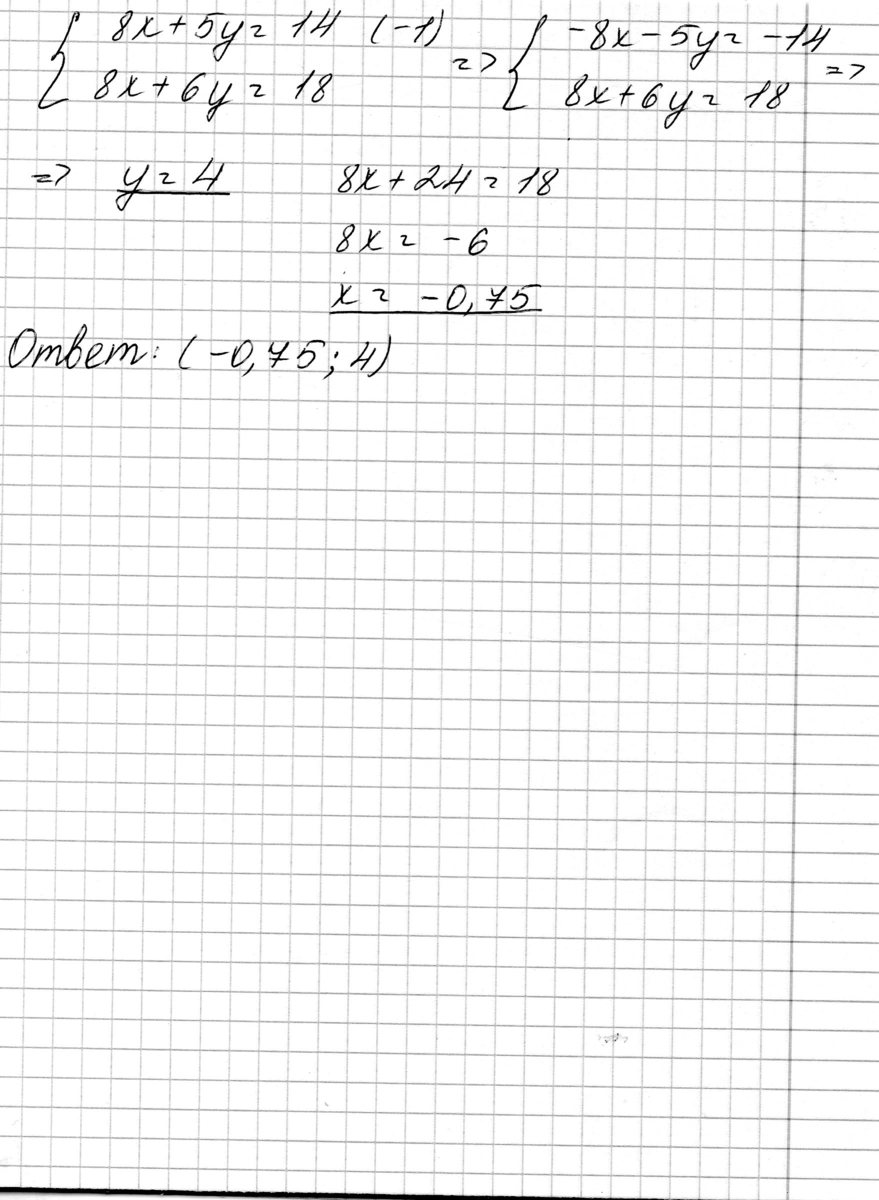 { 8x+5y=14 (-1) => { -8x-5y=-14
{ 8x+6y=18 { 8x+6y=18 =>
=> y=4 8x+24=18
8x=-6
x=-0,75
Ответ: (-0,75; 4)